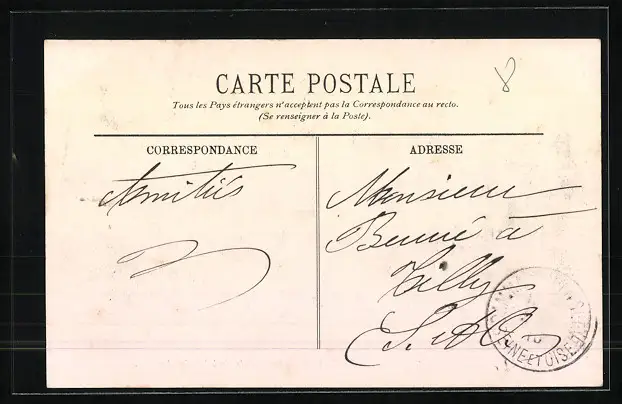 8
CARTE POSTALE
Tous les Pays étrangers n'acceptent pas la Correspondance au recto.
(Se renseigner à la Poste).
CORRESPONDANCE
ADRESSE
Amitiés
Monsieur
à
Tilly
S. et O.
SEINE ET OISE